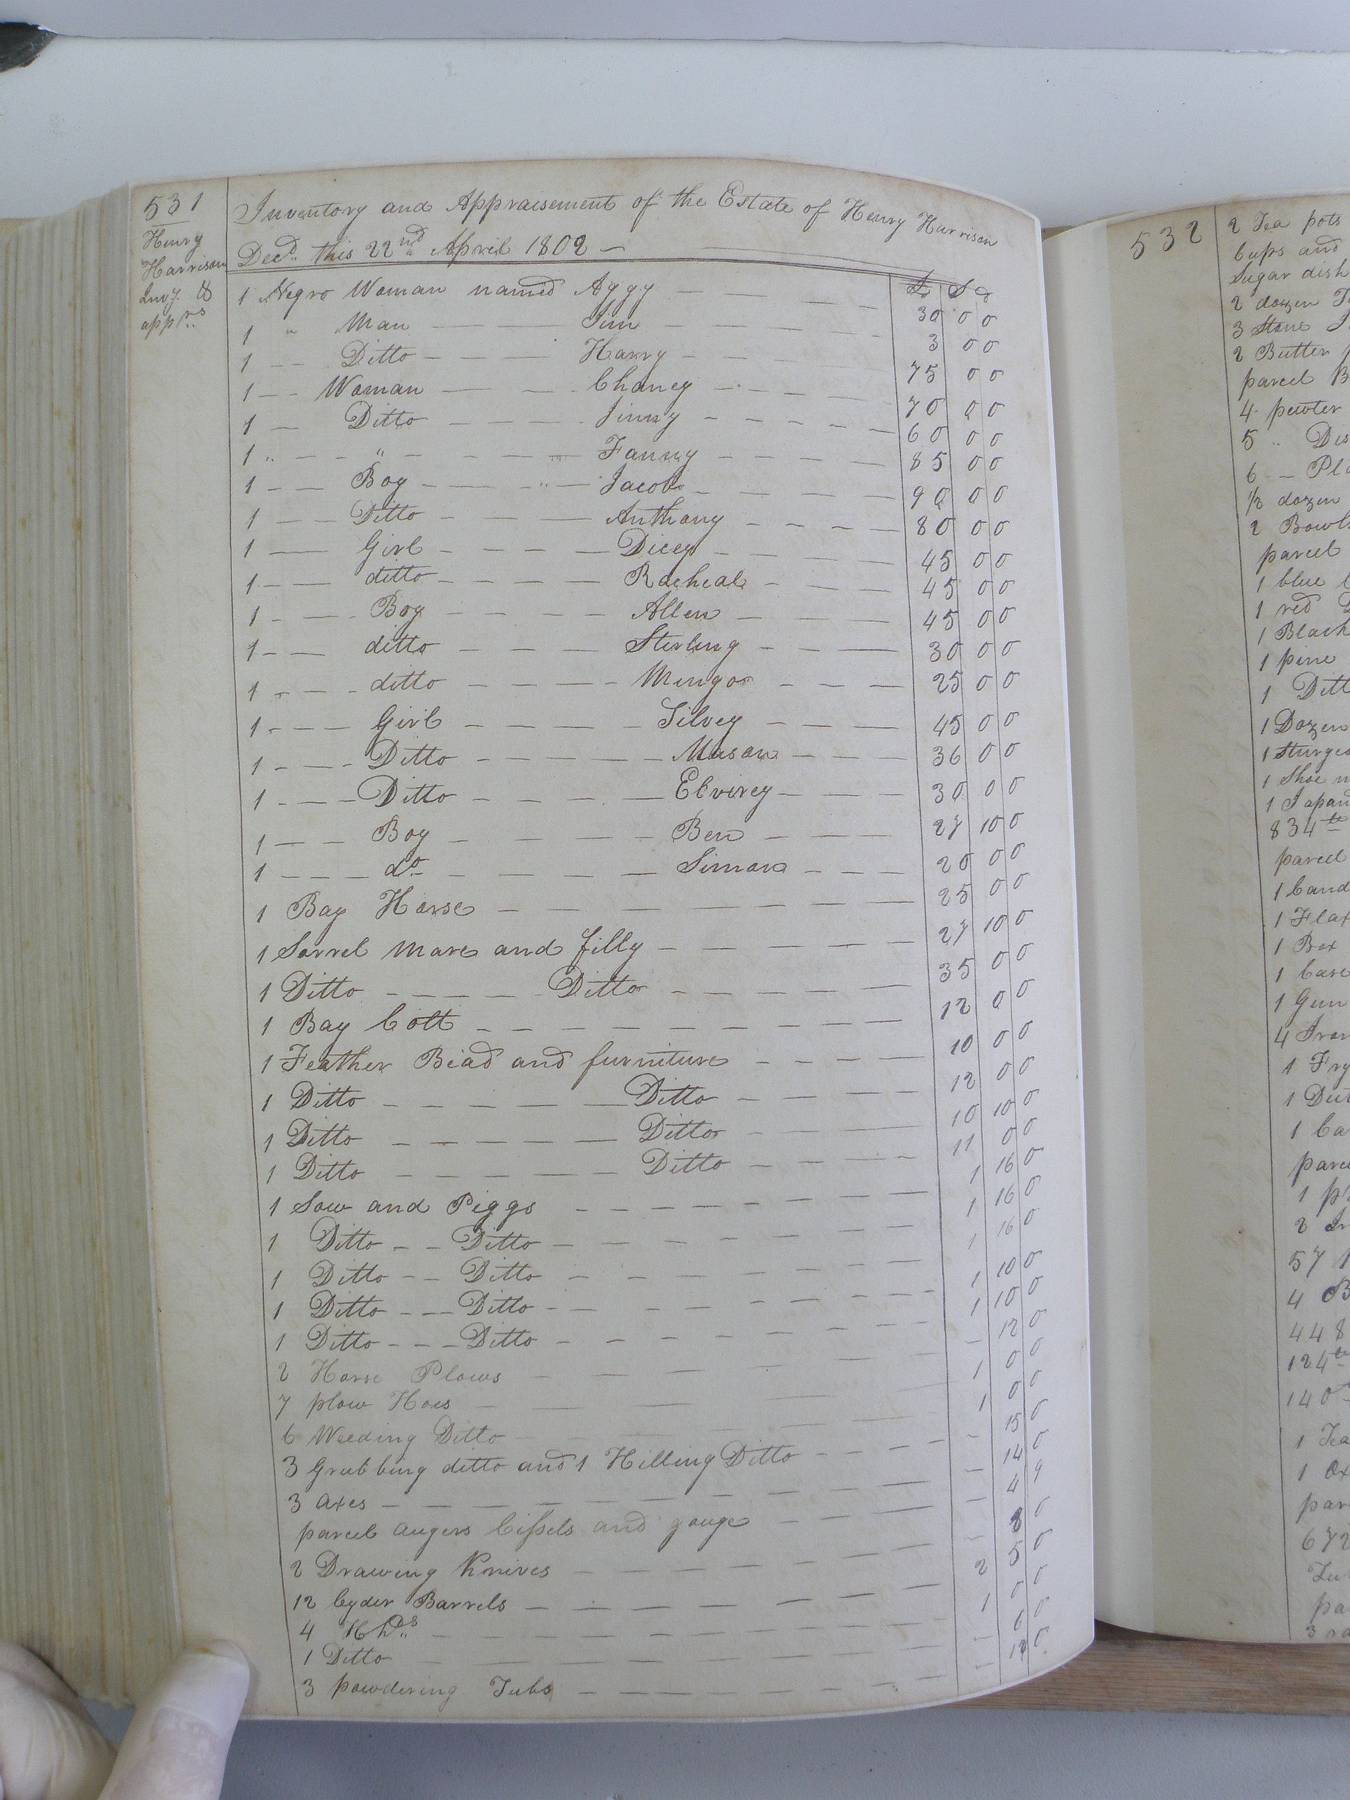 531
Henry
Harrison
Invy &
appr.s
Inventory and Appraisement of the Estate of Henry Harrison
Decd. this 22nd April 1802 —
£ S d
1 Negro Woman named Aggy — — — 30 0 0
1 " Man — — Jim — — — 3 0 0
1 — — Ditto — — — Harry — — — 75 0 0
1 — — Woman — — — Chaney — — — 70 0 0
1 — Ditto — — — Jinny — — — 60 0 0
1 " — — " — — — Fanny — — — 85 0 0
1 — — Boy — — " — Jacob — — — 90 0 0
1 — — Ditto — — — Anthony — — — 80 0 0
1 — — Girl — — — Dicey — — — 45 0 0
1 — — ditto — — — Racheal — — — 45 0 0
1 — — Boy — — — Allen — — — 45 0 0
1 — — ditto — — — Sterling — — — 30 0 0
1 — — ditto — — — Mingo — — — 25 0 0
1 — — Girl — — — Silvey — — — 45 0 0
1 — — Ditto — — — Mason — — — 36 0 0
1 — — Ditto — — — Elvirey — — — 30 0 0
1 — — Boy — — — Ben — — — 27 10 0
1 — — do — — — Simon — — — 20 0 0
1 Bay Horse — — — 25 0 0
1 Sorrel Mare and filly — — — 27 10 0
1 Ditto — — — Ditto — — — 35 0 0
1 Bay Colt — — — 12 0 0
1 Feather Bead and furniture — — — 10 0 0
1 Ditto — — — Ditto — — — 12 0 0
1 Ditto — — — Ditto — — — 10 10 0
1 Ditto — — — Ditto — — — 11 0 0
1 Sow and Piggs — — — 1 16 0
1 Ditto — — Ditto — — — 1 16 0
1 Ditto — — Ditto — — — 1 16 0
1 Ditto — — Ditto — — — 1 10 0
1 Ditto — — Ditto — — — 1 10 0
2 Horse Plows — — — 12 0
7 plow Hoes — — — 1 0 0
6 Weeding Ditto — — — 1 0 0
3 Grubbing ditto and 1 Hilling Ditto — — — 15 0
3 Axes — — — 14 0
parcel augers Cissels and gouge — — — 4 9
2 Drawing Knives — — — 8 0
12 Cyder Barrels — — — 2 5 0
4 Hhds — — — 1 0 0
1 Ditto — — — 6 0
3 powdering Tubs — — — 12 0
532
2 Tea pots
Cups and
Sugar dish
2 dozen
3 Stone
2 Butter
parcel
4 pewter
5 "
6 —
1/2 dozen
2 Bowls
parcel
1 blue
1 red
1 Black
1 pine
1 Ditt
1 Dozen
1 Sturge
1 Shoe
1 Japan
834 lb
parcel
1 Cand
1 Flax
1 Box
1 Case
1 Gun
4 Iron
1 Fry
1 Dut
1
parce
1
2
57
4
448
124 lb
140
1 Tea
1 Ox
par
672
par
3